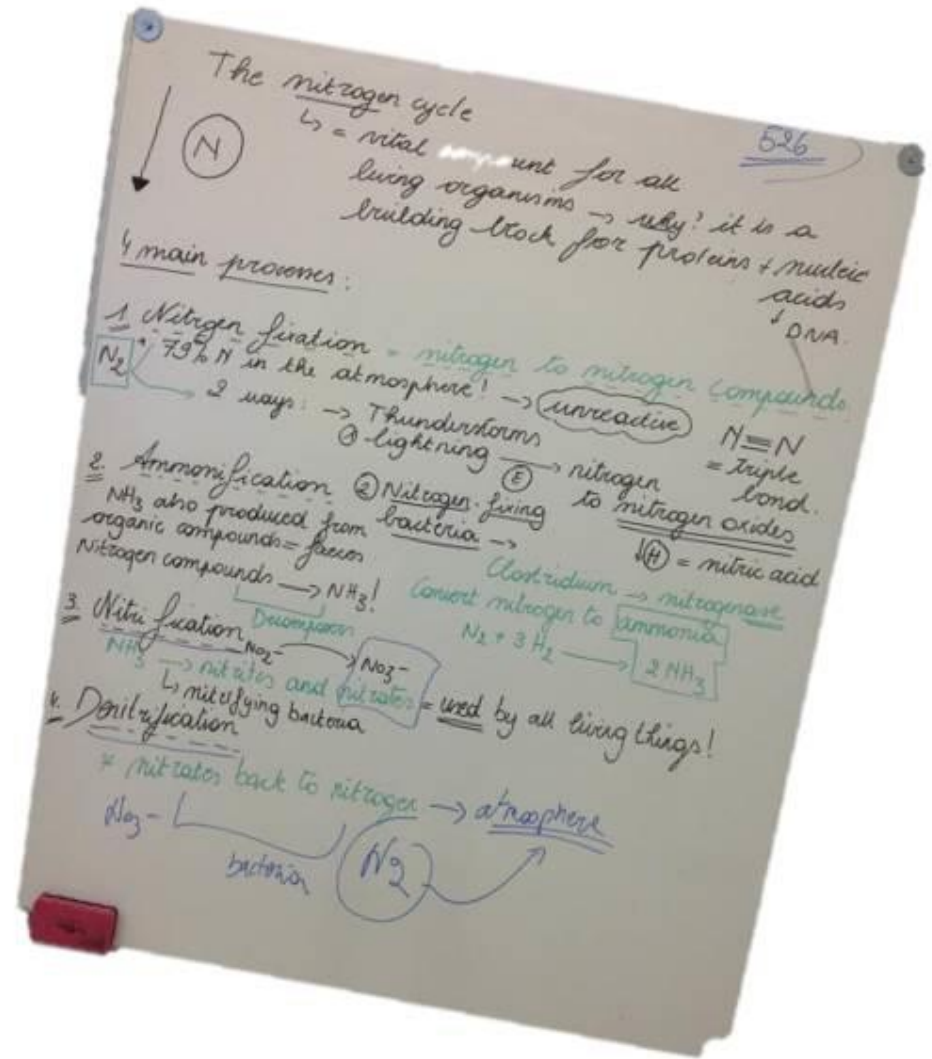 The nitrogen cycle
526
N
↳ = vital unt for all
living organisms → why? it is a
building block for proteins + nucleic
acids
↓ DNA
4 main processes:
1. Nitrgen fixation = nitrogen to nitrogen compounds
N2 * 79% N in the atmosphere! → unreactive
N≡N
= triple
bond.
2 ways: → Thunderstorms
① lightning → nitrogen
Ⓔ
to nitrogen oxides
↓ Ⓗ = nitric acid
② Nitrogen-fixing
bacteria →
Clostridium → nitrogenase
Convert nitrogen to ammonia
N2 + 3 H2 → 2 NH3
2. Ammonification
NH3 also produced from
organic compounds = faeces
Nitrogen compounds → NH3!
Decomposers
3. Nitrification
NO2- → NO3-
NH3 → nitrites and nitrates = used by all living things!
↳ nitrifying bacteria
4. Denitrification
* nitrates back to nitrogen → atmosphere
NO3-
bacteria
N2